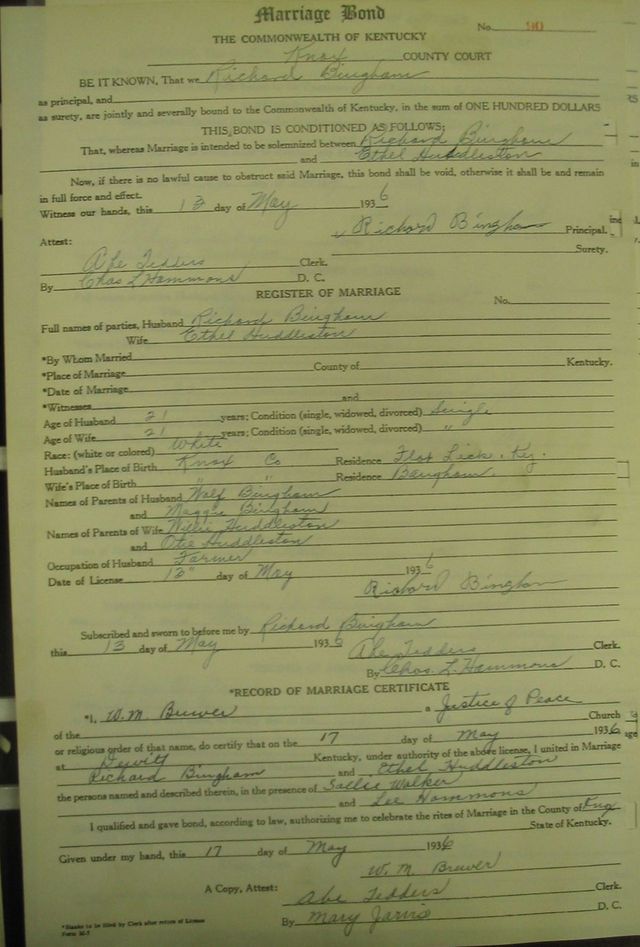 Marriage Bond
No. 90
THE COMMONWEALTH OF KENTUCKY
Knox COUNTY COURT
BE IT KNOWN, That we Richard Bingham
as principal, and
as surety, are jointly and severally bound to the Commonwealth of Kentucky, in the sum of ONE HUNDRED DOLLARS
THIS BOND IS CONDITIONED AS FOLLOWS:
That, whereas Marriage is intended to be solemnized between Richard Bingham
and Ethel Huddleston
Now, if there is no lawful cause to obstruct said Marriage, this bond shall be void, otherwise it shall be and remain
in full force and effect.
Witness our hands, this 13 day of May 1936
Richard Bingham Principal.
Attest: Surety.
Abe Tedders Clerk.
By Chas L Hammons D. C.
REGISTER OF MARRIAGE
No.
Full names of parties, Husband Richard Bingham
Wife Ethel Huddleston
*By Whom Married
*Place of Marriage County of Kentucky.
*Date of Marriage
*Witnesses and
Age of Husband 21 years; Condition (single, widowed, divorced) Single
Age of Wife 21 years; Condition (single, widowed, divorced) "
Race: (white or colored) White
Husband's Place of Birth Knox Co Residence Flat Lick, Ky.
Wife's Place of Birth " " Residence Baugham
Names of Parents of Husband Wolf Bingham
and Maggie Bingham
Names of Parents of Wife Willie Huddleston
and Otie Huddleston
Occupation of Husband Farmer
Date of License 13" day of May 1936
Richard Bingham
Subscribed and sworn to before me by Richard Bingham
this 13 day of May 1936
Abe Tedders Clerk.
By Chas. L. Hammons D. C.
*RECORD OF MARRIAGE CERTIFICATE
*I, W. M. Brewer a Justice of Peace
of the Church
or religious order of that name, do certify that on the 17 day of May 1936
at Dewitt Kentucky, under authority of the above license, I united in Marriage
Richard Bingham and Ethel Huddleston
the persons named and described therein, in the presence of Sallie Walker
and Lee Hammons
I qualified and gave bond, according to law, authorizing me to celebrate the rites of Marriage in the County of Knox
State of Kentucky.
Given under my hand, this 17 day of May 1936
W. M. Brewer
A Copy, Attest: Abe Tedders Clerk.
By Mary Jarvis D. C.
*Blanks to be filled by Clerk after return of License